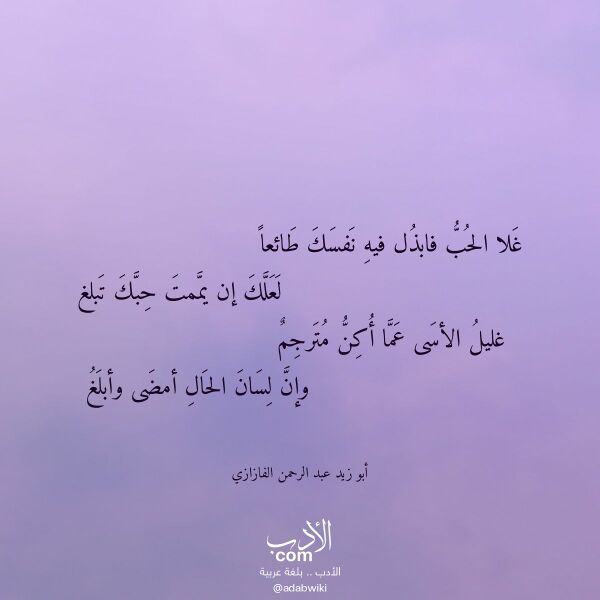 غَلا الحُبُّ فابذُل فيهِ نَفسَكَ طَائعاً
لَعَلَّكَ إن يمَّمتَ حِبَّكَ تَبلغ
غليلُ الأسَى عَمَّا أُكِنُّ مُتَرجِمٌ
وإنَّ لِسَانَ الحَالِ أمضَى وأبلَغُ
أبو زيد عبد الرحمن الفازازي
الأدب
.com
الأدب .. بلغة عربية
@adabwiki